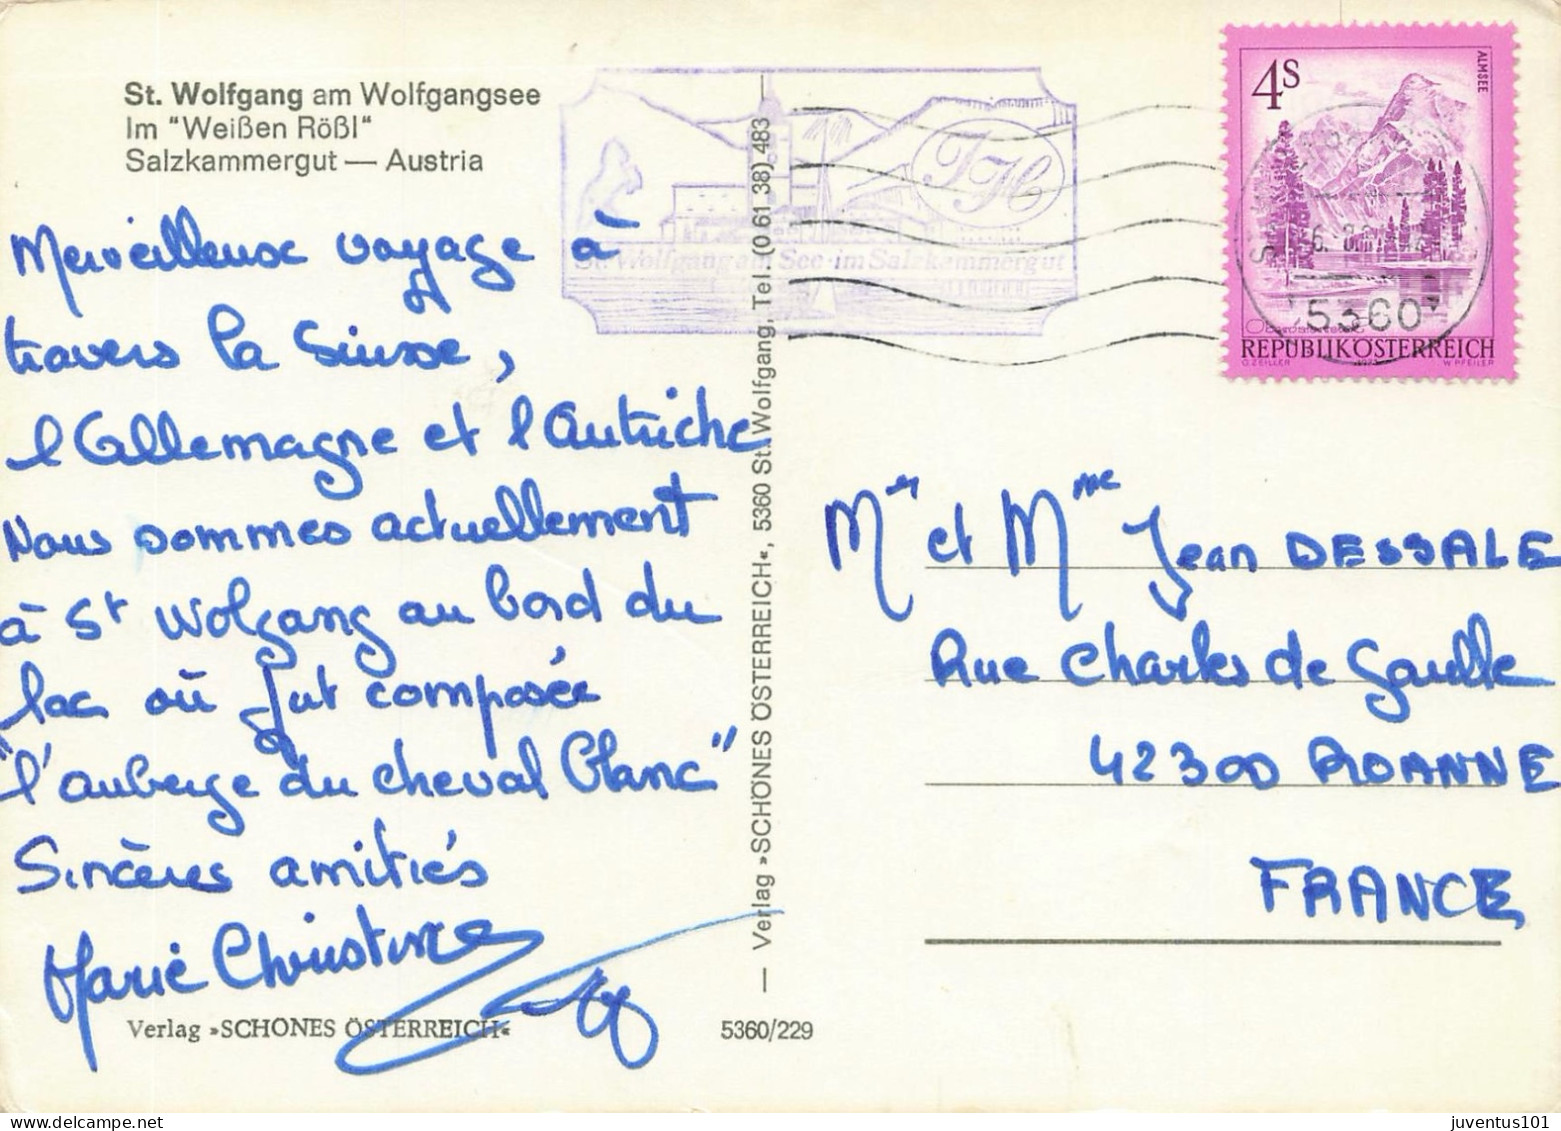 St. Wolfgang am Wolfgangsee
Im "Weißen Rößl"
Salzkammergut — Austria
Merveilleuse voyage à
travers la Suisse,
l'Allemagne et l'Autriche
Nous sommes actuellement
à St Wolgang au bord du
lac où fut composée
"l'auberge du cheval blanc"
Sincères amitiés
Marie Christine
Verlag »SCHÖNES ÖSTERREICH«
5360/229
— Verlag »SCHÖNES ÖSTERREICH«, 5360 St. Wolfgang, Tel. (0 61 38) 483
St. Wolfgang am See · im Salzkammergut
4S
ALMSEE
5360
REPUBLIK ÖSTERREICH
O. ZEILLER 1973 W. PFEILER
Mr et Mme Jean DESSALE
Rue Charles de Gaulle
42300 ROANNE
FRANCE
juventus101